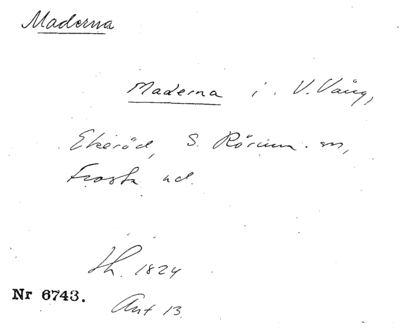 Maderna
Maderna i V. Väng,
Ekeröd, S. Rörum sn,
Frosta hd.
Lh. 1824
Nr 6743.
Ant 13